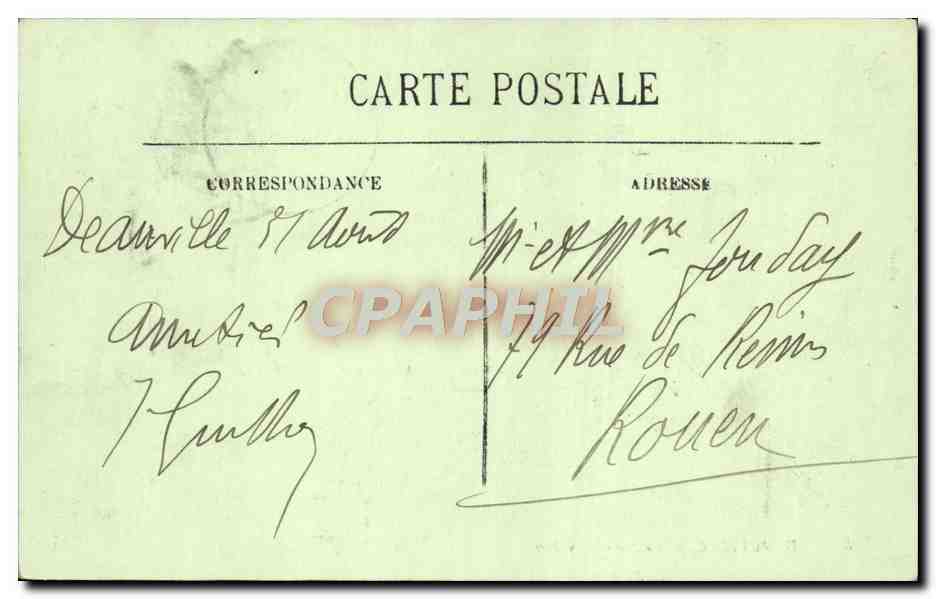 CARTE POSTALE
CORRESPONDANCE
Deauville 31 Août
Amitiés
ADRESSE
Mr et Mme Jouday
79 Rue de Reims
Rouen
CPAPHIL